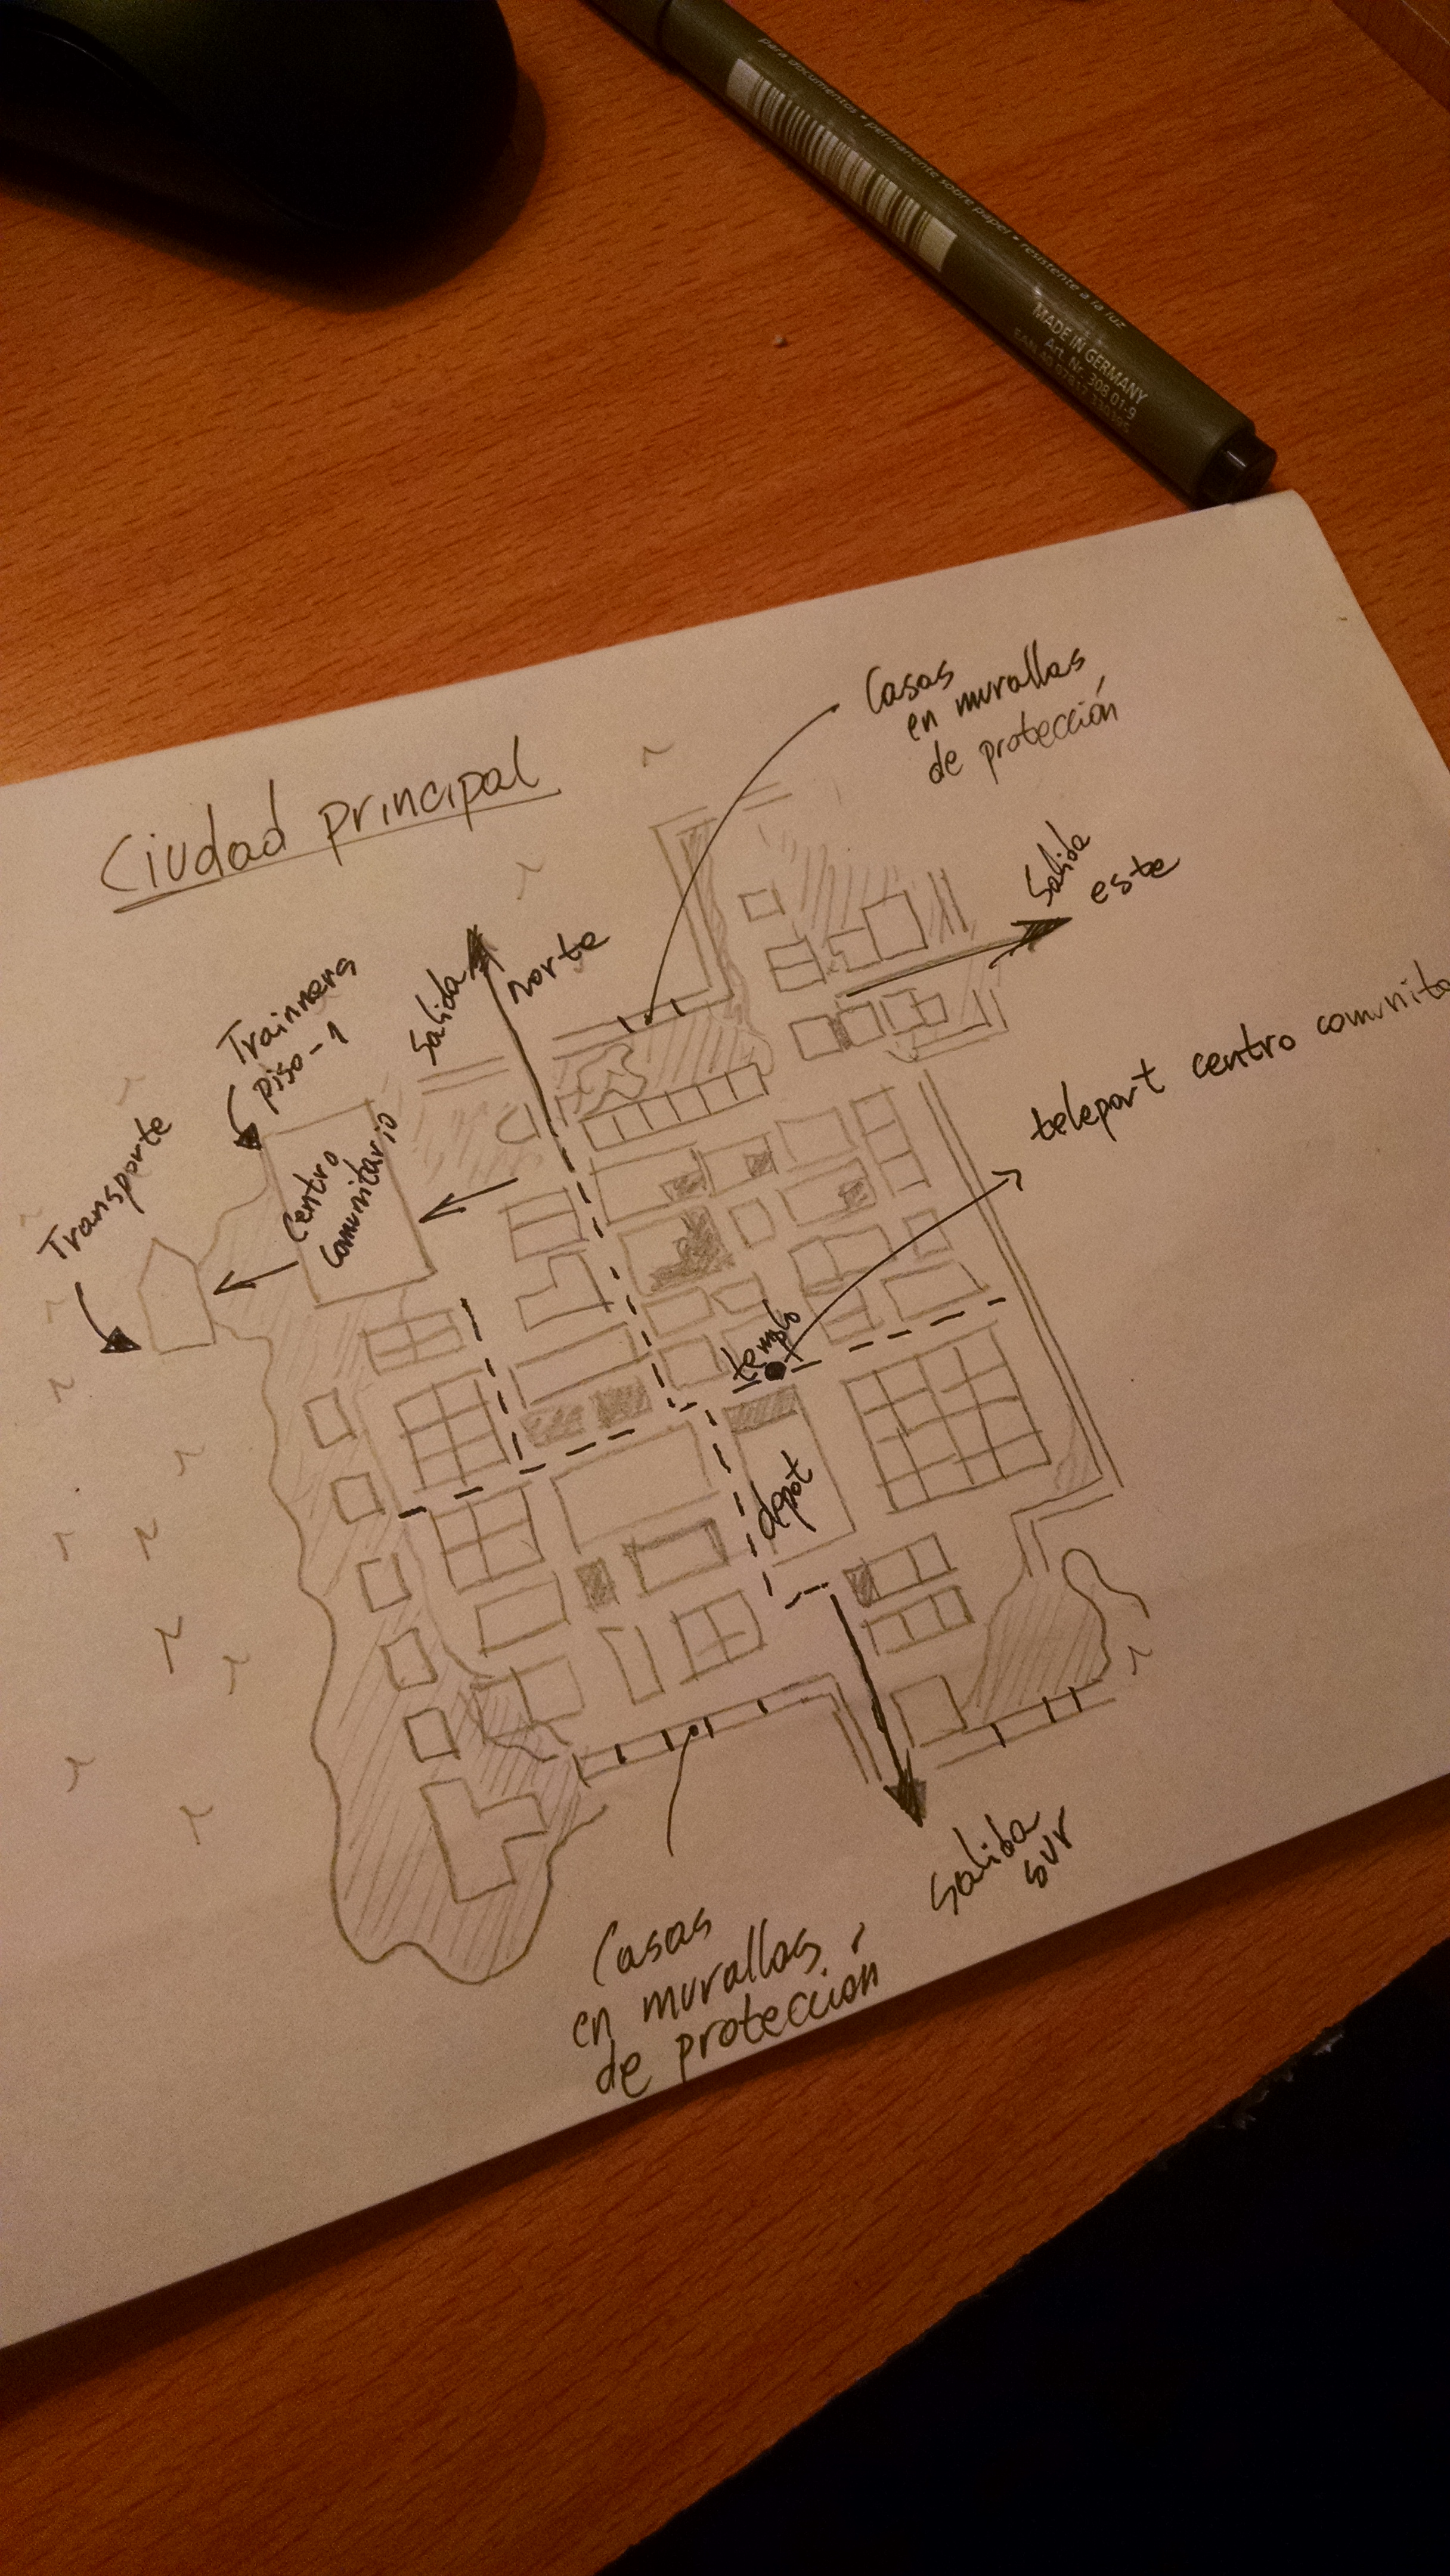 para documentos • permanente sobre papel • resistente a la luz
MADE IN GERMANY
Art. Nr. 308 01-9
Ciudad principal
Casas
en murallas
de protección
Salida
este
Salida
norte
Trainners
piso-1
Transporte
Centro
Comunitario
teleport centro comunita
templo
depot
Salida
sur
Casas
en murallas
de protección